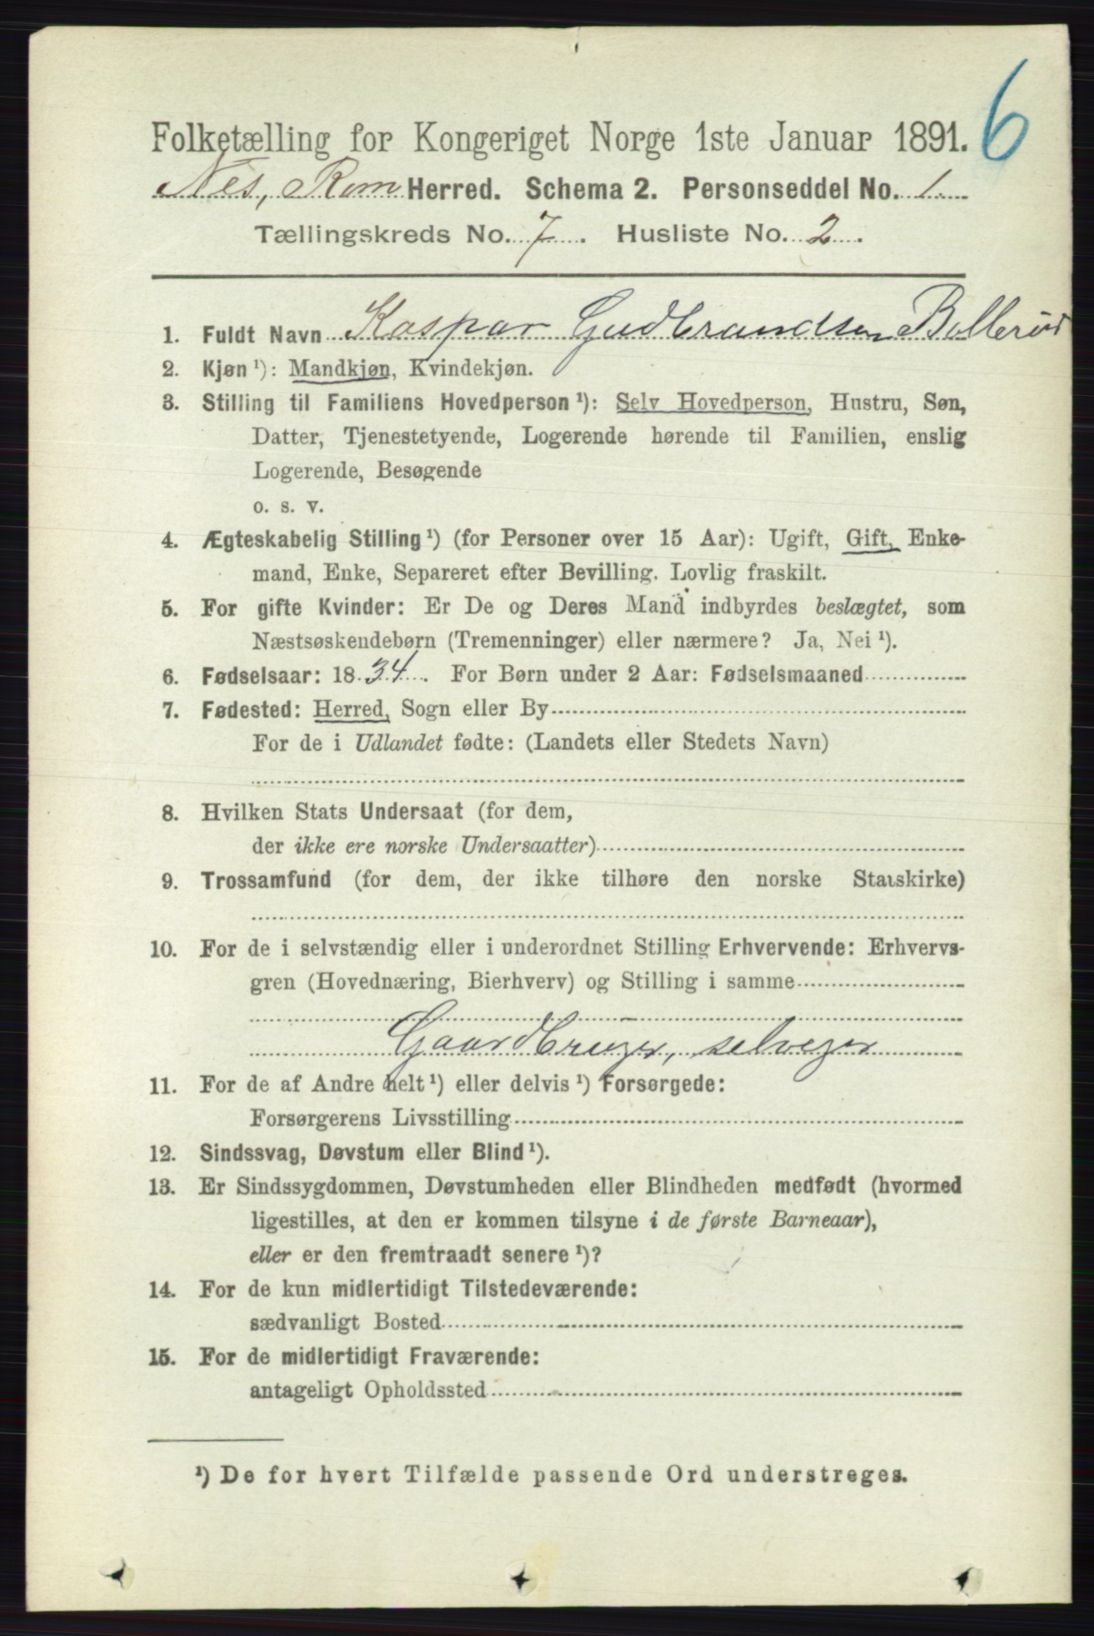 6
Folketælling for Kongeriget Norge 1ste Januar 1891.
Nes, Rom Herred. Schema 2. Personseddel No. 1
Tællingskreds No. 7. Husliste No. 2.
1. Fuldt Navn Kaspar Gudbrandsen Bollerud
2. Kjøn ¹): Mandkjøn, Kvindekjøn.
3. Stilling til Familiens Hovedperson ¹): Selv Hovedperson, Hustru, Søn,
Datter, Tjenestetyende, Logerende hørende til Familien, enslig
Logerende, Besøgende
o. s. v.
4. Ægteskabelig Stilling ¹) (for Personer over 15 Aar): Ugift, Gift, Enke-
mand, Enke, Separeret efter Bevilling. Lovlig fraskilt.
5. For gifte Kvinder: Er De og Deres Mand indbyrdes beslægtet, som
Næstsøskendebørn (Tremenninger) eller nærmere? Ja, Nei ¹).
6. Fødselsaar: 1834. For Børn under 2 Aar: Fødselsmaaned
7. Fødested: Herred, Sogn eller By
For de i Udlandet fødte: (Landets eller Stedets Navn)
8. Hvilken Stats Undersaat (for dem,
der ikke ere norske Undersaatter)
9. Trossamfund (for dem, der ikke tilhøre den norske Statskirke)
10. For de i selvstændig eller i underordnet Stilling Erhvervende: Erhvervs-
gren (Hovednæring, Bierhverv) og Stilling i samme
Gaardbruger, selveger
11. For de af Andre helt ¹) eller delvis ¹) Forsørgede:
Forsørgerens Livsstilling
12. Sindssvag, Døvstum eller Blind ¹).
13. Er Sindssygdommen, Døvstumheden eller Blindheden medfødt (hvormed
ligestilles, at den er kommen tilsyne i de første Barneaar),
eller er den fremtraadt senere ¹)?
14. For de kun midlertidigt Tilstedeværende:
sædvanligt Bosted
15. For de midlertidigt Fraværende:
antageligt Opholdssted
¹) De for hvert Tilfælde passende Ord understreges.